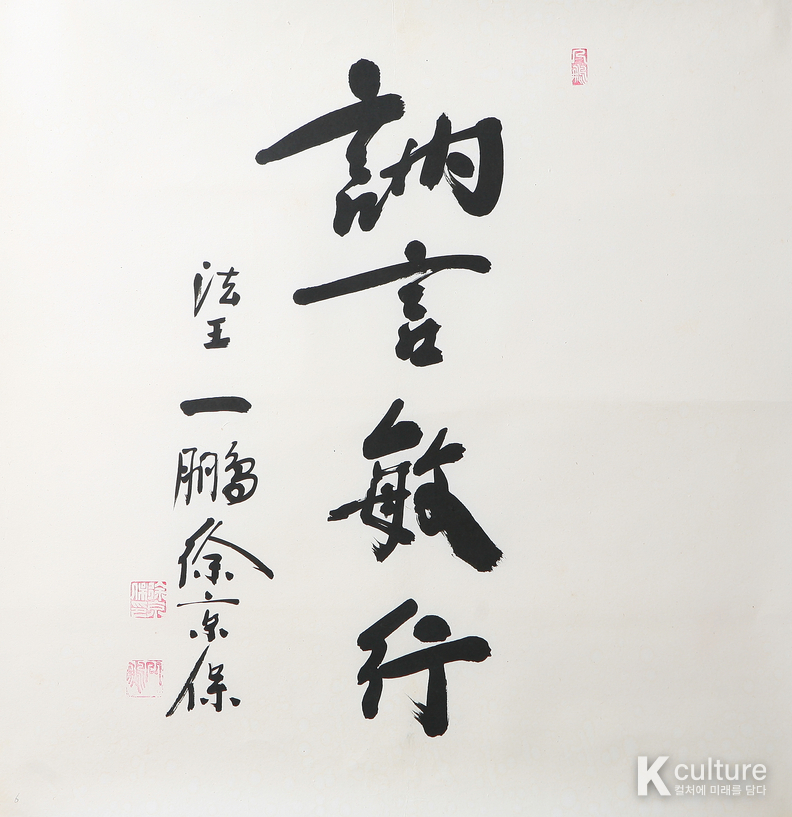 訥言敏行
法王 一鵬 徐京保
K culture
컬처에 미래를 담다